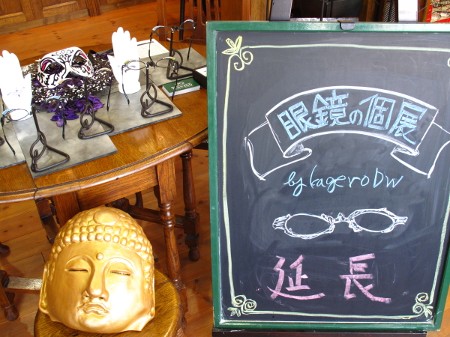 眼鏡の個展
by kagerow
延長